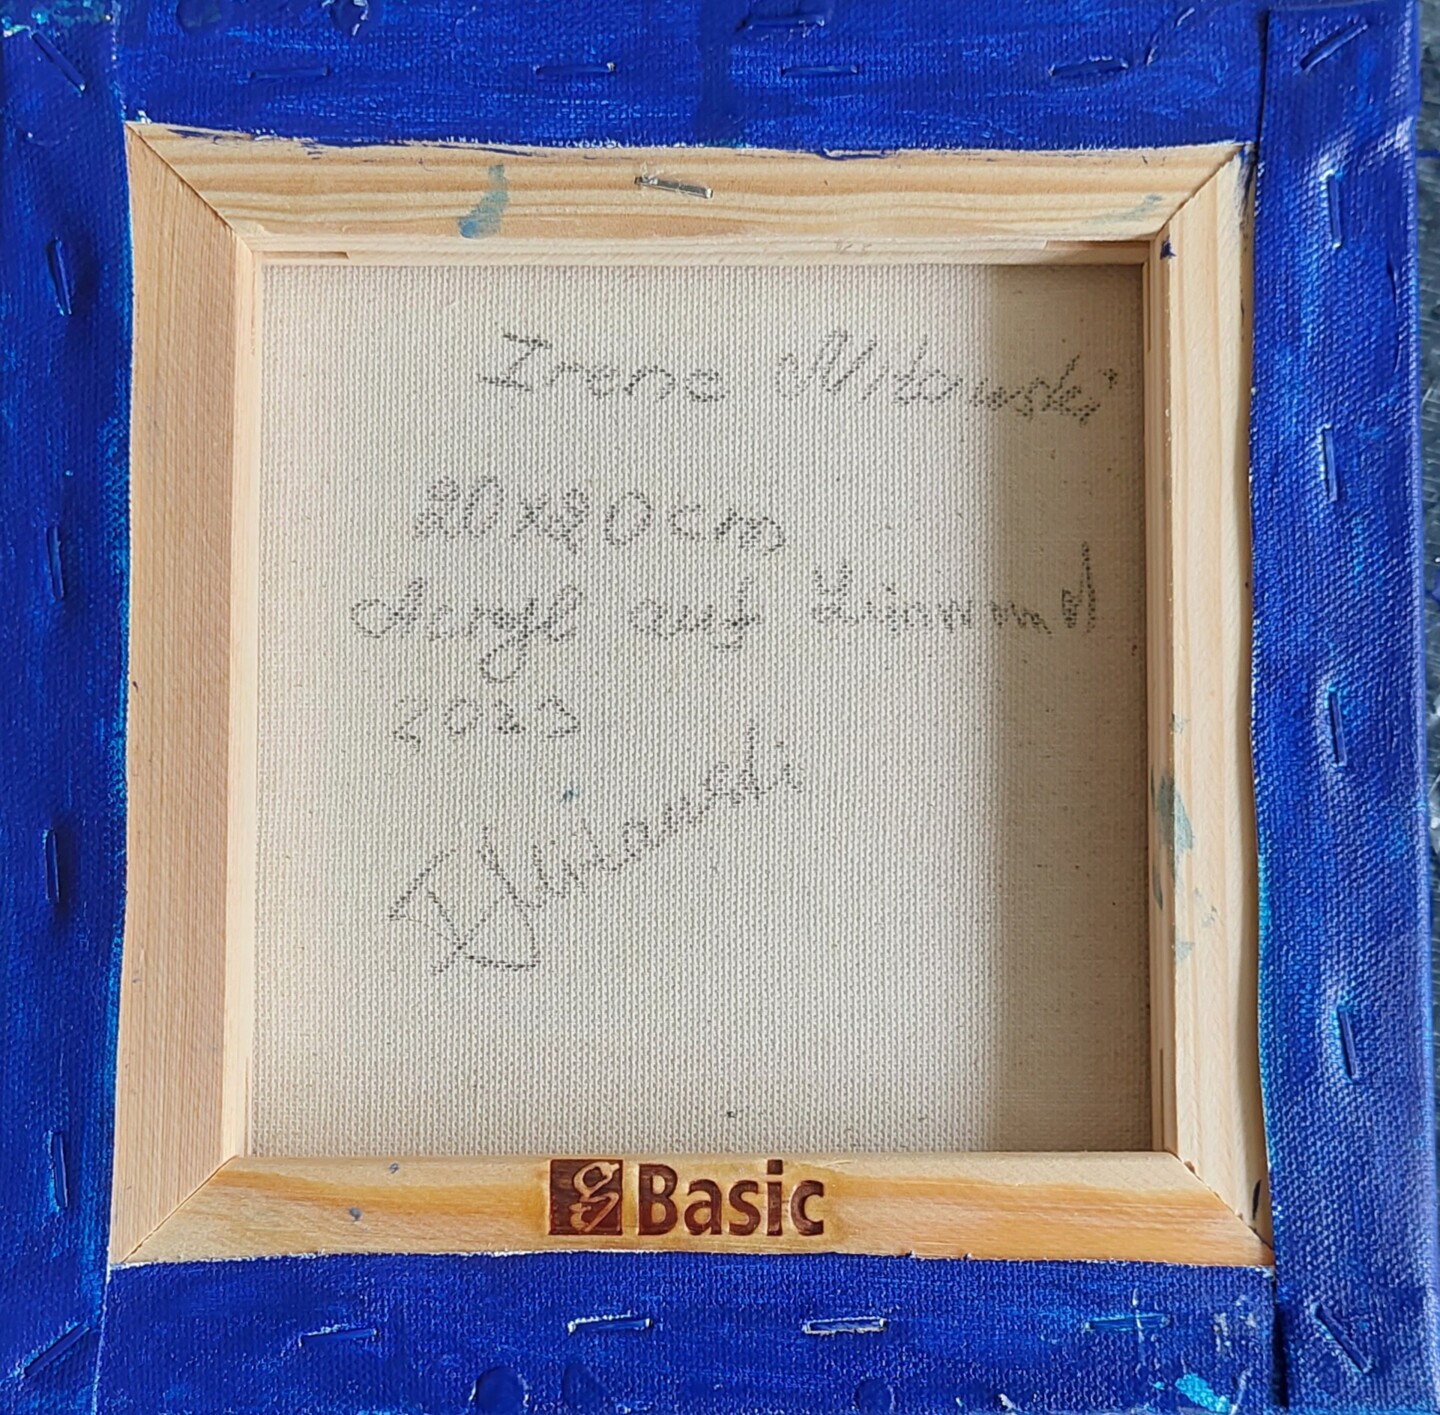 Irene Mitowski
20x20cm
Acryl auf Leinwand
2023
I Mitowski
Basic